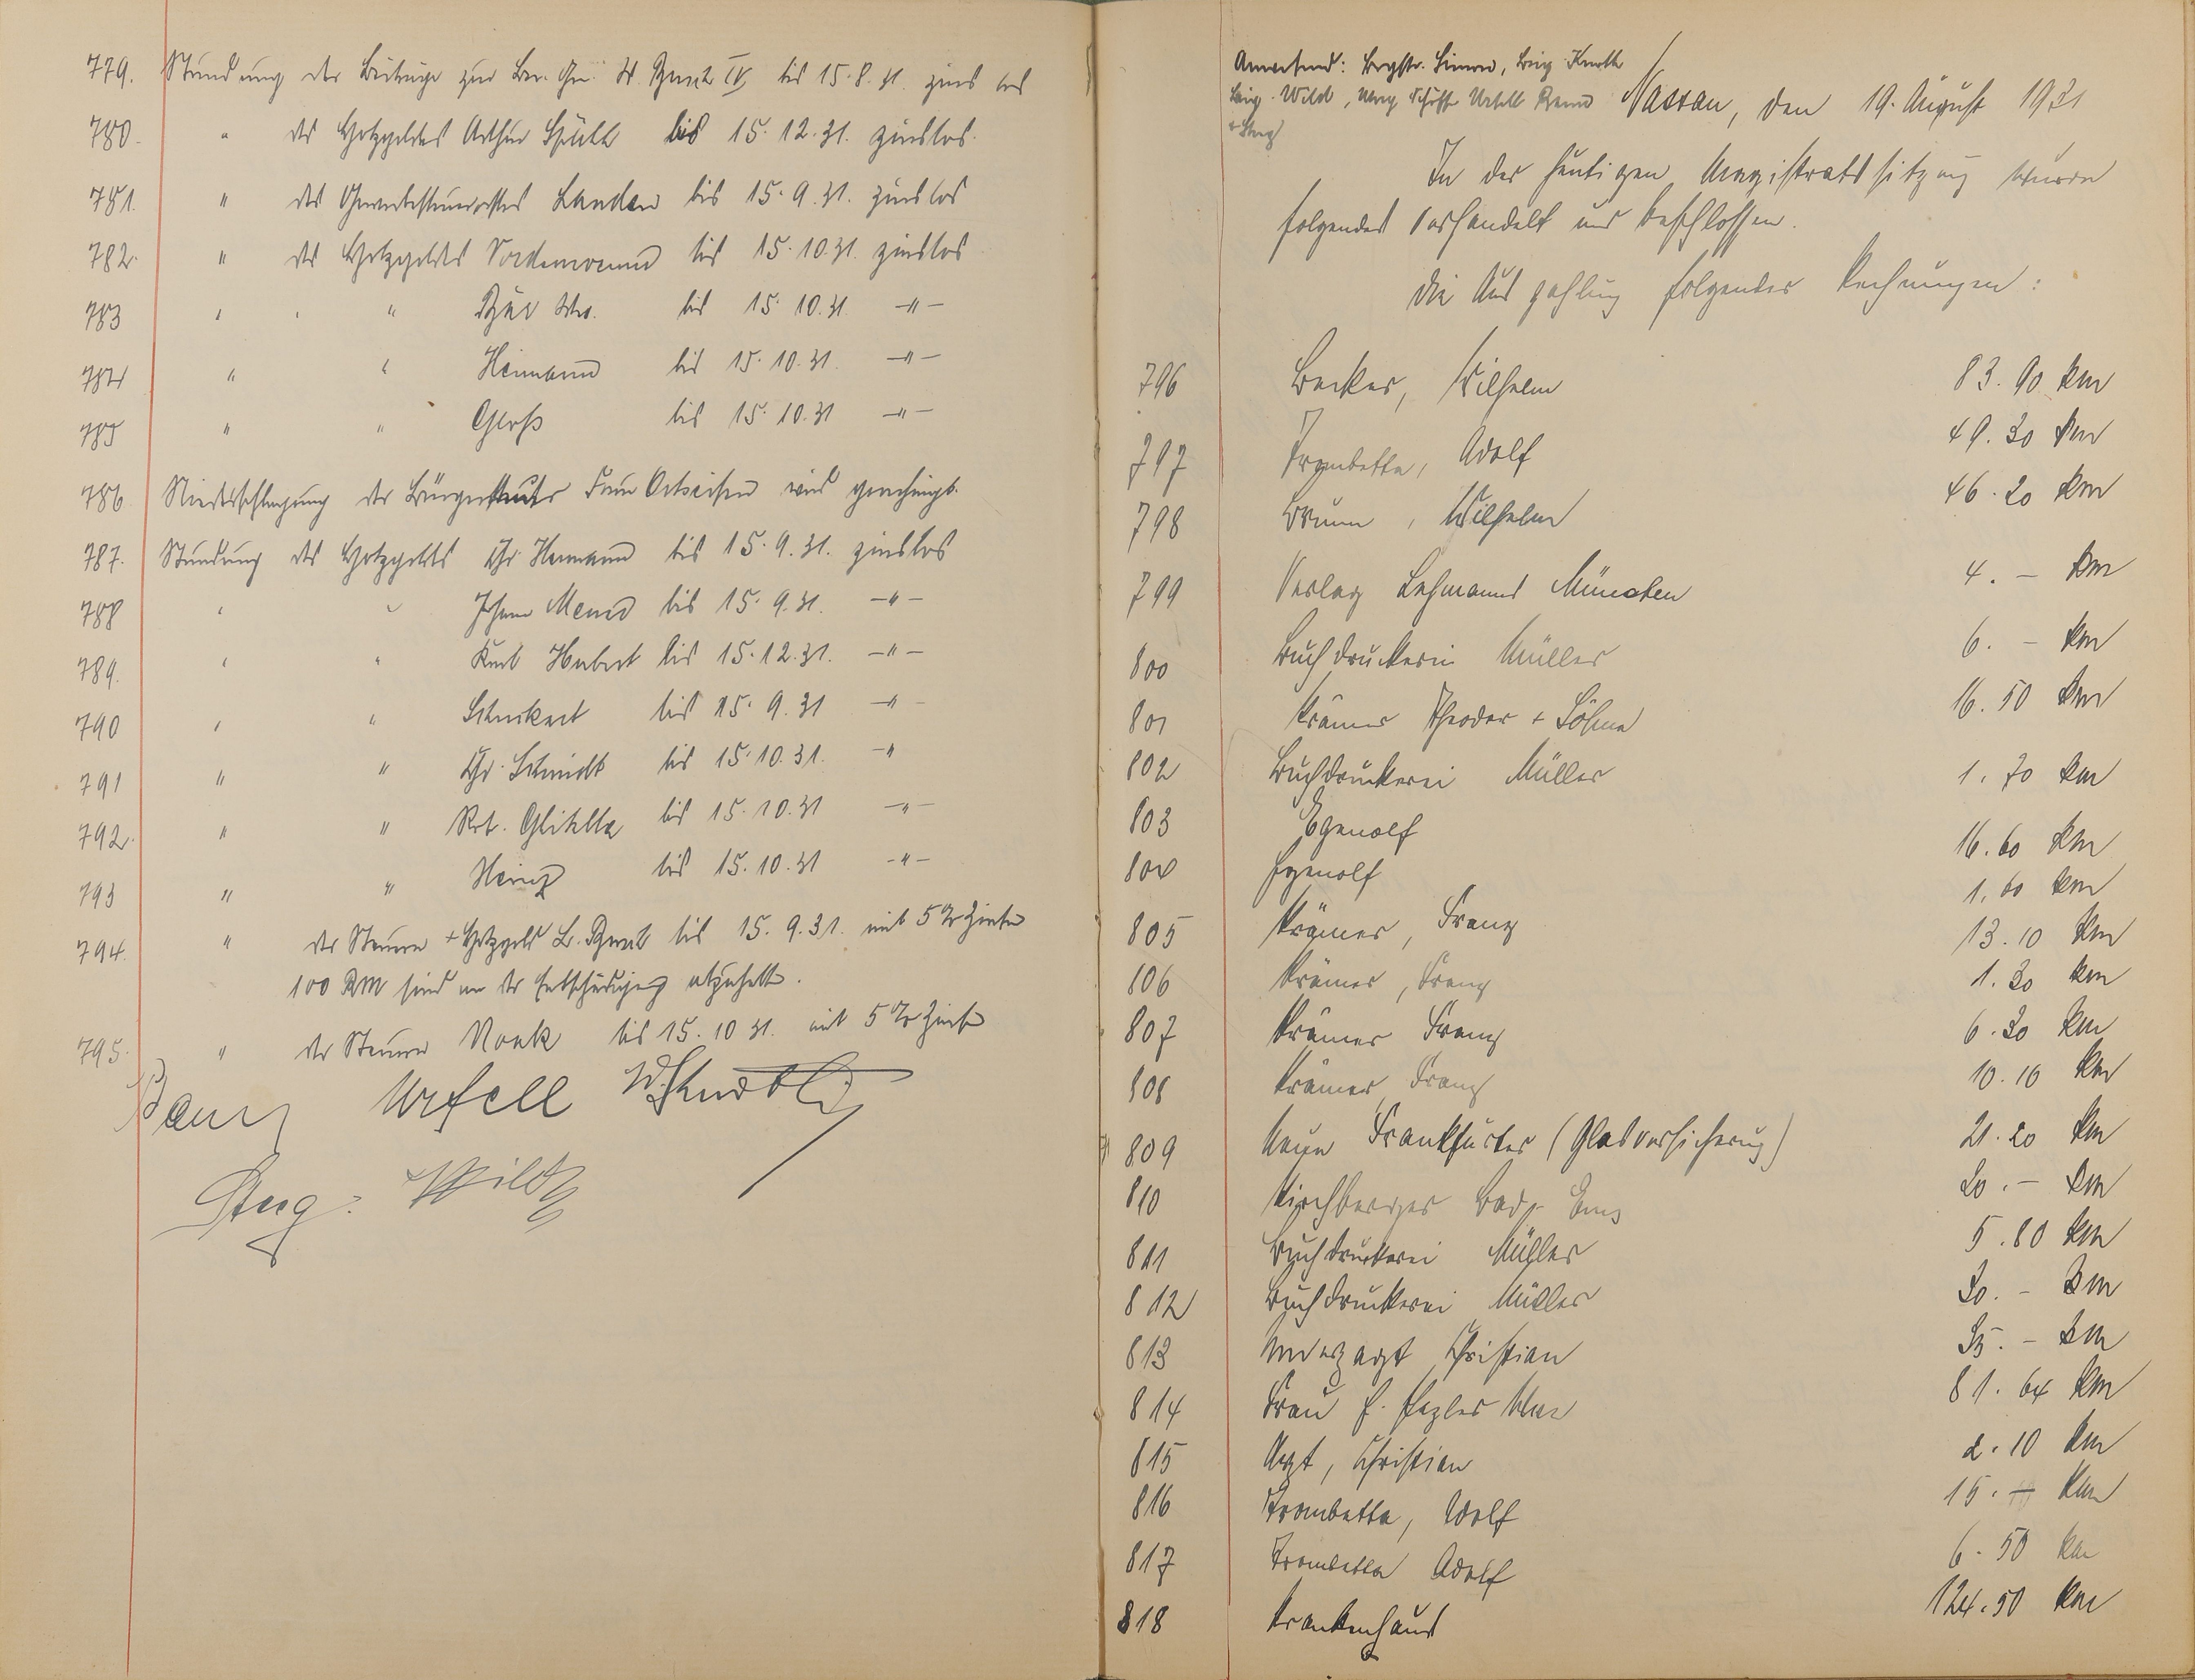 779. Stundung der Beiträge zur bis 15.8.31. zinslos
780. " des Holzgeldes Arthur bis 15.12.31. zinslos.
781. " des Gewerbesteuerrestes Landau bis 15.9.31. zinslos
782. " des Holzgeldes bis 15.10.31. zinslos
783 " " " bis 15.10.31 -"-
784 " " Heimann bis 15.10.31. -"-
785 " " Groß bis 15.10.31 -"-
786 Niederschlagung der Bürgersteuer wird genehmigt.
787. Stundung des Holzgeldes Chr. Hermann bis 15.9.31. zinslos
788 " " Johann bis 15.9.31. -"-
789. " " Karl Hubert bis 15.12.31. -"-
790 " " Schuckart bis 15.9.31 -"-
791 " " Chr. Schmidt bis 15.10.31. -"
792. " " Rob. bis 15.10.31 -"-
793 " " Heinz bis 15.10.31 -"-
794. " der Steuern + Holzgeld bis 15.9.31. mit 5% Zinsen
100 RM sind an der Entschädigung abzuhalten.
795. " der Steuern Noak bis 15.10.31. mit 5% Zinsen
Urfell
Sterg. Wild
Anwesend: Bürgstr. Beig. Knoth
Beig. Wild, Urfell
+ Sterg
Nassau, den 19. August 1931
In der heutigen Magistratssitzung wurde
folgendes verhandelt und beschlossen.
Die Auszahlung folgender Rechnungen:
796 Becker, Wilhelm 83.90 RM
797 Trombetta, Adolf 49.30 RM
798 Braun, Wilhelm 46.20 RM
799 Verlag Lehmanns München 4.- RM
800 Buchdruckerei Müller 6.- RM
801 Krämer Theodor + Söhne 16.50 RM
802 Buchdruckerei Müller 1.70 RM
803 Egenolf 16.60 RM
804 Egenolf 1.60 RM
805 Krämer, Franz 13.10 RM
806 Krämer, Franz 1.30 RM
807 Krämer Franz 6.30 RM
808 Krämer, Franz 10.10 RM
809 Neue Frankfurter (Glasversicherung) 21.20 RM
810 Kirchberger Bad Ems 20.- RM
811 Buchdruckerei Müller 5.80 RM
812 Buchdruckerei Müller 30.- RM
813 Christian 35.- RM
814 Frau 81.64 RM
815 Arzt, Christian 2.10 RM
816 Trombetta, Adolf 15.- RM
817 Trombetta Adolf 6.50 RM
818 Krankenhaus 124.50 RM